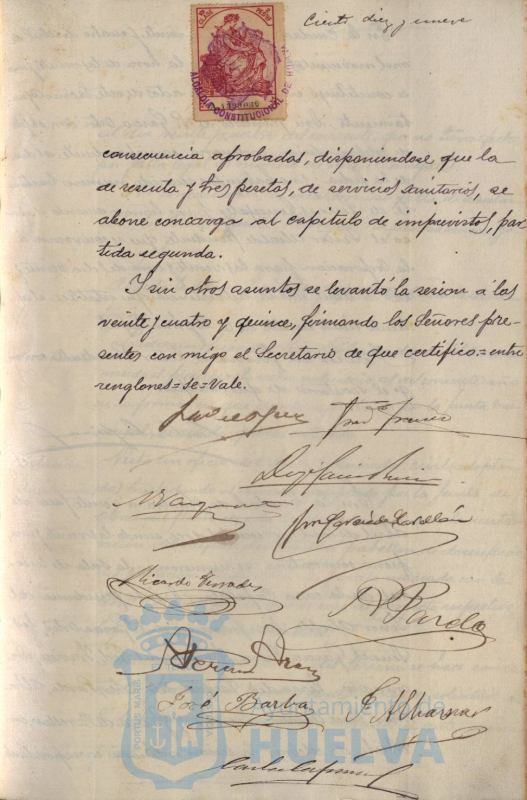 Ciento diez y nueve
ALCALDIA CONSTITUCIONAL DE
consecuencia aprobadas, disponiendose que la
de sesenta y tres pesetas, de servicios sanitarios, se
abone con cargo al capitulo de imprevistos, par-
tida segunda.
Y sin otros asuntos se levantó la sesion á las
veinte y cuatro y quince, firmando los Señores pre-
sentes con migo el Secretario de que certifico.=entre
renglones=se=Vale.
Ricardo Terrades
A Pardo
José Barba
Ayuntamiento de
HUELVA
PORTUS MARIS